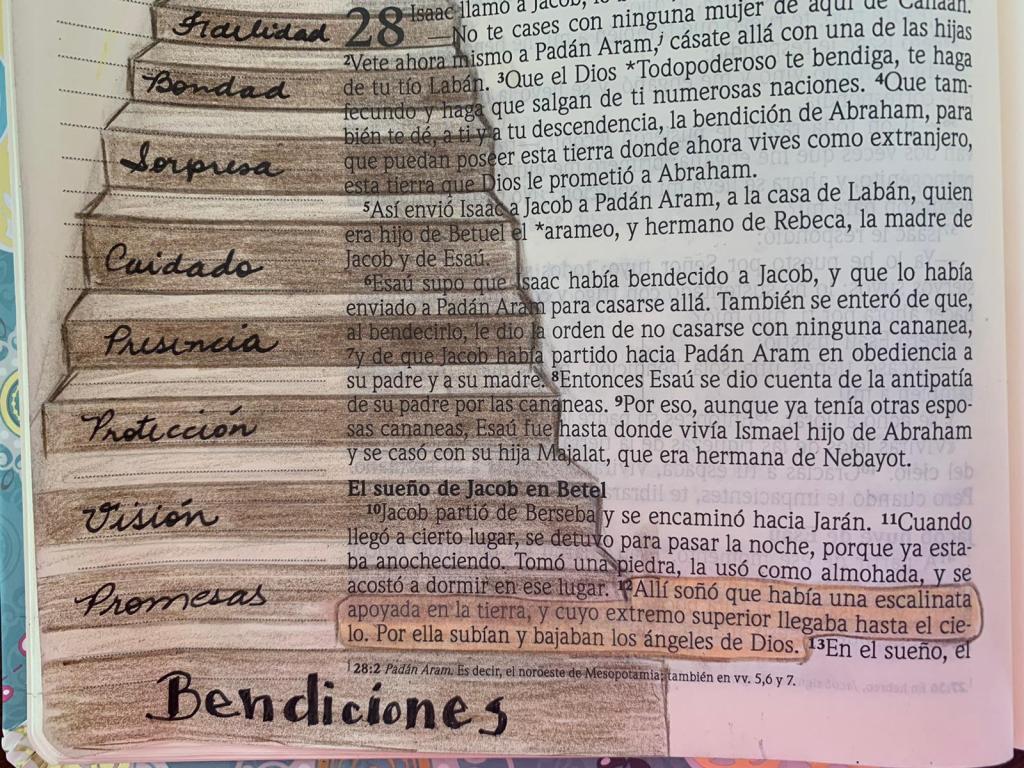 Fidelidad
Bondad
Sorpresa
Cuidado
Presencia
Protección
Visión
Promesas
Bendiciones
28 Isaac llamó a Jacob, lo
—No te cases con ninguna mujer de aquí de Canaán.
²Vete ahora mismo a Padán Aram,ʲ cásate allá con una de las hijas
de tu tío Labán. ³Que el Dios *Todopoderoso te bendiga, te haga
fecundo y haga que salgan de ti numerosas naciones. ⁴Que tam-
bién te dé, a ti y a tu descendencia, la bendición de Abraham, para
que puedan poseer esta tierra donde ahora vives como extranjero,
esta tierra que Dios le prometió a Abraham.
⁵Así envió Isaac a Jacob a Padán Aram, a la casa de Labán, quien
era hijo de Betuel el *arameo, y hermano de Rebeca, la madre de
Jacob y de Esaú.
⁶Esaú supo que Isaac había bendecido a Jacob, y que lo había
enviado a Padán Aram para casarse allá. También se enteró de que,
al bendecirlo, le dio la orden de no casarse con ninguna cananea,
⁷y de que Jacob había partido hacia Padán Aram en obediencia a
su padre y a su madre. ⁸Entonces Esaú se dio cuenta de la antipatía
de su padre por las cananeas. ⁹Por eso, aunque ya tenía otras espo-
sas cananeas, Esaú fue hasta donde vivía Ismael hijo de Abraham
y se casó con su hija Majalat, que era hermana de Nebayot.
El sueño de Jacob en Betel
¹⁰Jacob partió de Berseba y se encaminó hacia Jarán. ¹¹Cuando
llegó a cierto lugar, se detuvo para pasar la noche, porque ya esta-
ba anocheciendo. Tomó una piedra, la usó como almohada, y se
acostó a dormir en ese lugar. ¹²Allí soñó que había una escalinata
apoyada en la tierra, y cuyo extremo superior llegaba hasta el cie-
lo. Por ella subían y bajaban los ángeles de Dios. ¹³En el sueño, el
ʲ 28:2 Padán Aram. Es decir, el noroeste de Mesopotamia; también en vv. 5,6 y 7.